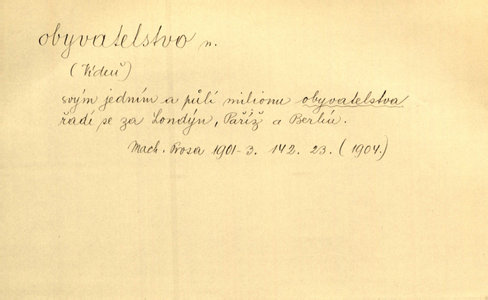 obyvatelstvo n.
(Vídeň)
svým jedním a půlí milionu obyvatelstva
řadí se za Londýn, Paříž a Berlín.
Mach. Prosa 1901-3. 142. 23. (1904.)